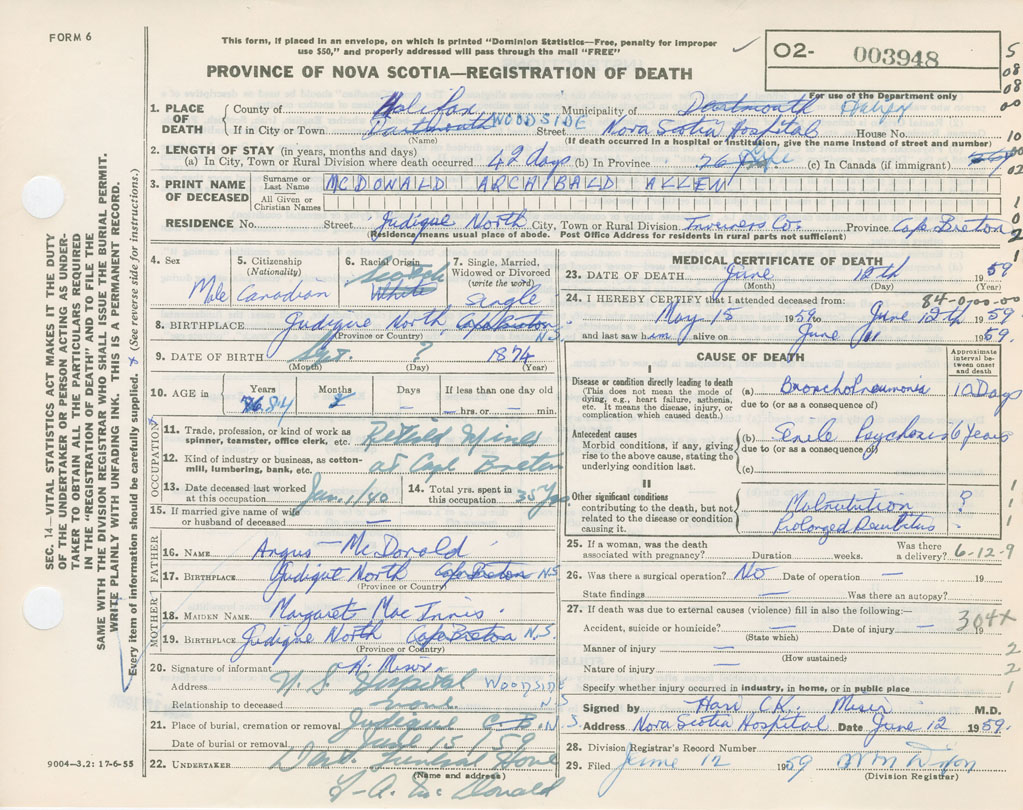 FORM 6
This form, if placed in an envelope, on which is printed "Dominion Statistics—Free, penalty for improper
use $50," and properly addressed will pass through the mail "FREE"
PROVINCE OF NOVA SCOTIA—REGISTRATION OF DEATH
02- 003948
For use of the Department only
5
08
08
00
10
00
02
1. PLACE OF DEATH
County of Halifax Municipality of Dartmouth Halifx
If in City or Town Dartmouth WOODSIDE Street Nova Scotia Hospital House No.
(Name) (If death occurred in a hospital or institution, give the name instead of street and number)
2. LENGTH OF STAY (in years, months and days)
(a) In City, Town or Rural Division where death occurred 42 days (b) In Province 76 Life (c) In Canada (if immigrant)
3. PRINT NAME OF DECEASED
Surname or Last Name MCDONALD ARCHIBALD ALLEN
All Given or Christian Names
RESIDENCE No. Street Judique North City, Town or Rural Division Inverness Co. Province Cape Breton
(Residence means usual place of abode. Post Office Address for residents in rural parts not sufficient)
4. Sex
Male
5. Citizenship (Nationality)
Canadian
6. Racial Origin
Scotch
White
7. Single, Married, Widowed or Divorced (write the word)
Single
8. BIRTHPLACE Judique North Cape Breton N.S.
(Province or Country)
9. DATE OF BIRTH Sept. ? 1874
(Month) (Day) (Year)
10. AGE in
Years 76 84 Months Days — If less than one day old
— hrs. or — min.
OCCUPATION
11. Trade, profession, or kind of work as spinner, teamster, office clerk, etc. Retired Miner
12. Kind of industry or business, as cotton-mill, lumbering, bank, etc. at Cape Breton
13. Date deceased last worked at this occupation Jan. 1/40 14. Total yrs. spent in this occupation 35 Yrs.
15. If married give name of wife or husband of deceased —
FATHER
16. NAME Angus — McDonald
17. BIRTHPLACE Judique North Cape Breton N.S
(Province or Country)
MOTHER
18. MAIDEN NAME Margaret MacInnis.
19. BIRTHPLACE Judique North Cape Breton N.S.
(Province or Country)
20. Signature of informant
Address N.S. Hospital WOODSIDE
Relationship to deceased none N S
21. Place of burial, cremation or removal Judique C.B. N.S
Date of burial or removal June 15/59
22. UNDERTAKER Dart Funeral Home
(Name and address)
L.A. McDonald
9004—3.2: 17-6-55
MEDICAL CERTIFICATE OF DEATH
23. DATE OF DEATH June 12th 1959
(Month) (Day) (Year)
24. I HEREBY CERTIFY that I attended deceased from: 84-0-00-00
May 15 1959 to June 12th 1959
and last saw him alive on June 11 1959.
CAUSE OF DEATH
Approximate interval between onset and death
I
Disease or condition directly leading to death
(This does not mean the mode of dying, e.g., heart failure, asthenia, etc. It means the disease, injury, or complication which caused death.)
(a) Bronchopneumonia 10 Days
due to (or as a consequence of)
Antecedent causes
Morbid conditions, if any, giving rise to the above cause, stating the underlying condition last.
(b) Senile Psychosis 6 Years
due to (or as a consequence of)
(c)
II
Other significant conditions
contributing to the death, but not related to the disease or condition causing it.
Malnutrition ?
Prolonged Decubitus
25. If a woman, was the death associated with pregnancy? Duration weeks. Was there a delivery? 6-12-9
26. Was there a surgical operation? No Date of operation — 19
State findings — Was there an autopsy?
27. If death was due to external causes (violence) fill in also the following:—
Accident, suicide or homicide? — Date of injury — 19 304X
(State which)
Manner of injury —
(How sustained)
Nature of injury —
Specify whether injury occurred in industry, in home, or in public place
Signed by Hari C.K. Misir M.D.
Address Nova Scotia Hospital Date June 12 1959.
28. Division Registrar's Record Number
29. Filed June 12 1959 W M Dixon
(Division Registrar)
SEC. 14—VITAL STATISTICS ACT MAKES IT THE DUTY
OF THE UNDERTAKER OR PERSON ACTING AS UNDER-
TAKER TO OBTAIN ALL THE PARTICULARS REQUIRED
IN THE "REGISTRATION OF DEATH" AND TO FILE THE
SAME WITH THE DIVISION REGISTRAR WHO SHALL ISSUE THE BURIAL PERMIT.
WRITE PLAINLY WITH UNFADING INK. THIS IS A PERMANENT RECORD.
Every item of information should be carefully supplied. (See reverse side for instructions.)